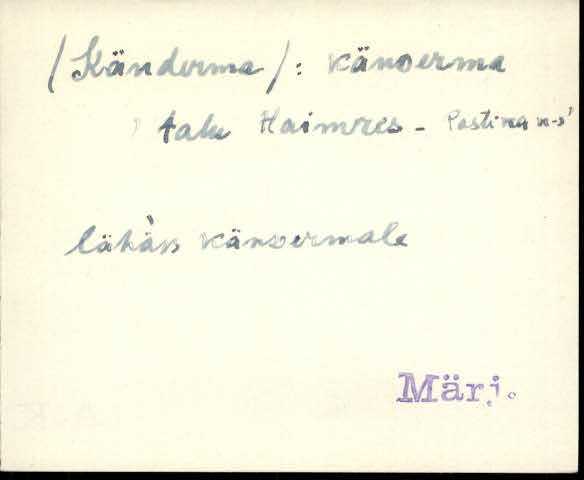 (Känderma): känDerma
talu Haimres - Pastima n-s'
lähän känDermale
Märj.